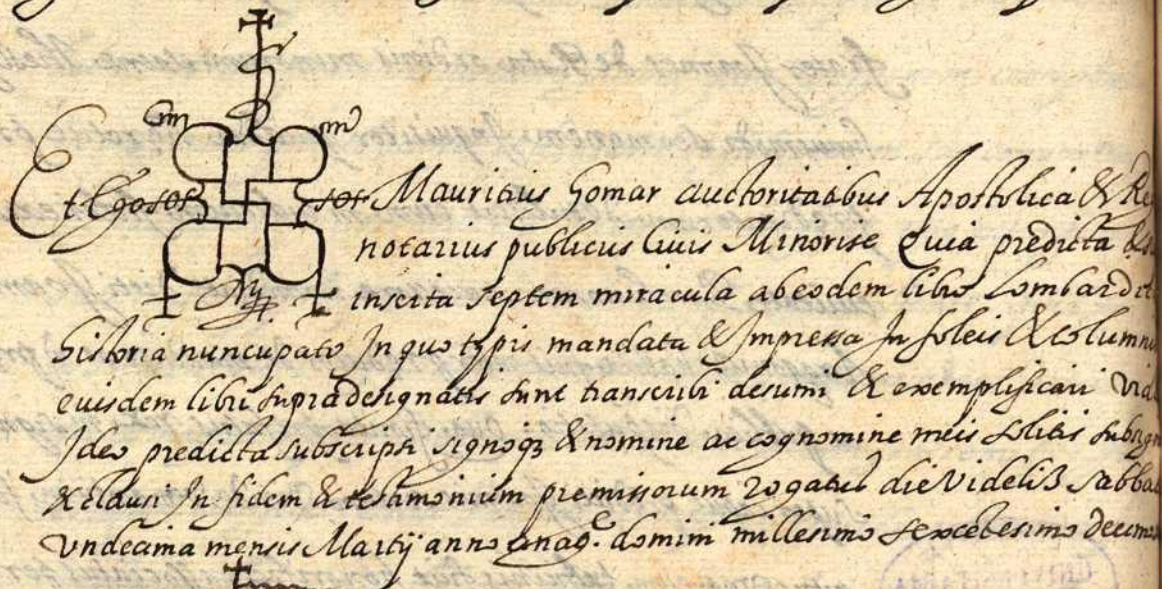 Et Ego sos sor Mauritius Gomar auctoritatibus Apostolica & Re
notarius publicus Civis Minorise Quia predicta &
inserta septem miracula ab eodem libro Lombardi
historia nuncupato In quo typis mandata & Impressa In foleis & column
euisdem libri supradesignatis sunt transcribi desumi & exemplificari vid
Ideo predicta subscripsi signoq; & nomine ac cognomine meis solitis subsign
& clausi In fidem & testimonium premissorum rogatus die Videlis sabba
Undecima mensis Martij anno a nate. domini millesimo sexcetesimo decim